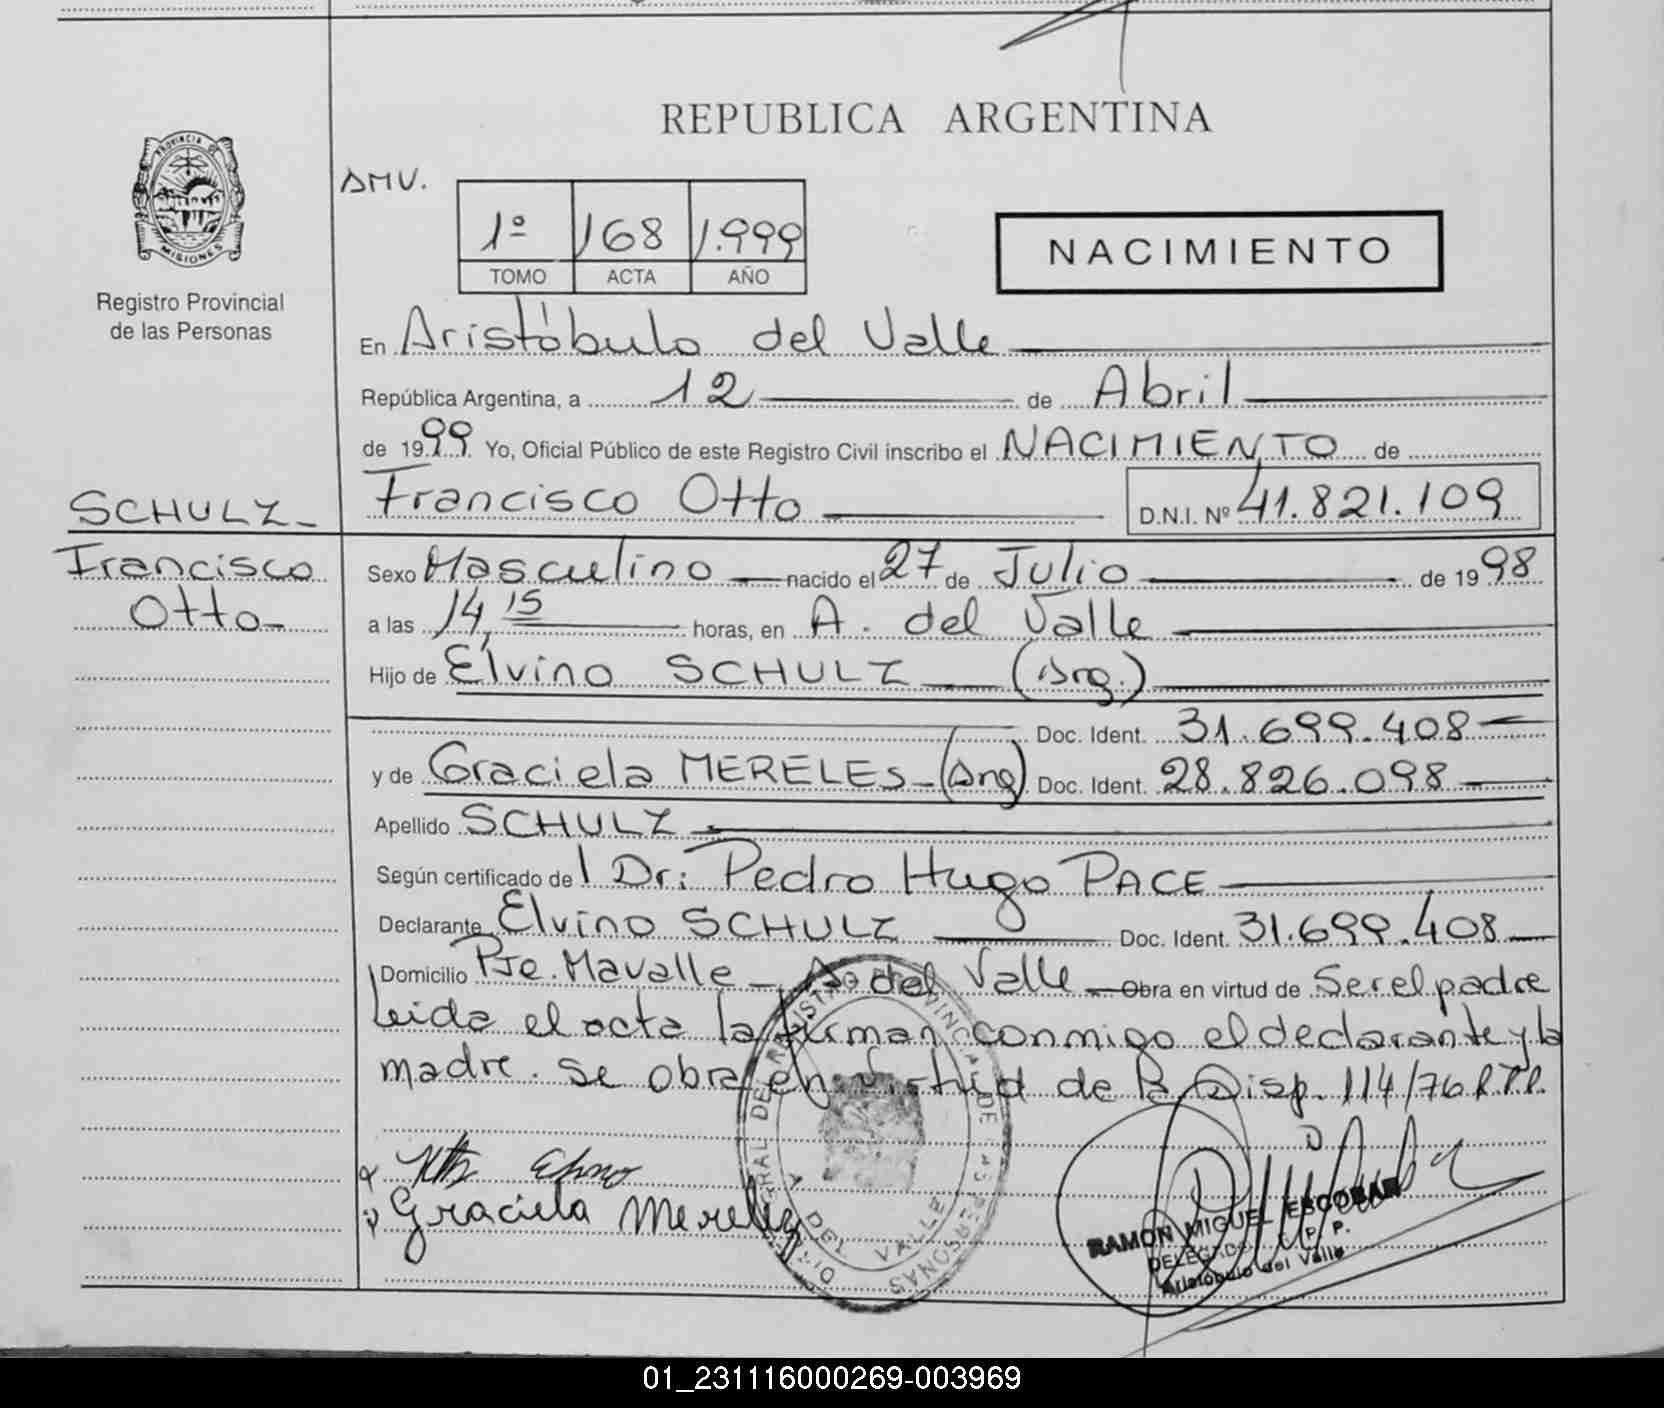 REPUBLICA ARGENTINA
PROVINCIA DE
MISIONES
Registro Provincial
de las Personas
AMV.
1º 168 1.999
TOMO ACTA AÑO
NACIMIENTO
En Aristóbulo del Valle
República Argentina, a 12 de Abril
de 1999 Yo, Oficial Público de este Registro Civil inscribo el NACIMIENTO de
SCHULZ
Francisco Otto D.N.I. Nº 41.821.109
Francisco
Otto
Sexo Masculino nacido el 27 de Julio de 1998
a las 14,15 horas, en A. del Valle
Hijo de Elvino SCHULZ (Arg.)
Doc. Ident. 31.699.408
y de Graciela MERELES (Arg) Doc. Ident. 28.826.098
Apellido SCHULZ
Según certificado de l Dr: Pedro Hugo PACE
Declarante Elvino SCHULZ Doc. Ident. 31.699.408
Domicilio Pje. Mavalle - A del Valle Obra en virtud de Ser el padre
Leida el acta la firman conmigo el declarante y la
madre. Se obra en virtud de la Disp. 114/76 R.P.P.
Graciela Mereles
A DEL VALLE
RAMON MIGUEL ESCOBAR
DELEGADO R. P. P.
Aristóbulo del Valle
01_231116000269-003969